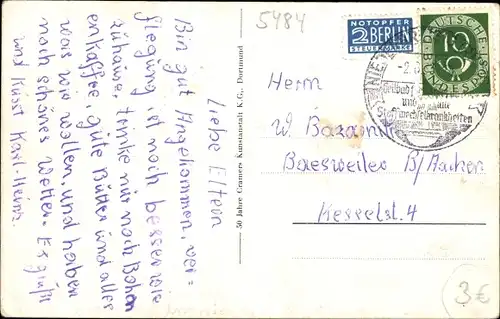 5484
NOTOPFER
2 BERLIN
STEUERMARKE
DEUTSCHE
BUNDESPOST
10
Heilbad
und
Stoffwechselkrankheiten
Liebe Eltern
Bin gut Angekommen, ver=
flegung ist noch besser wie
zuhäuse, trinke nur noch Bohn
enkaffee, güte Bütter und alles
was wir wollen, und haben
noch schönes Wetter. Es grüßt
und küsst Karl-Heinz
50 Jahre Cramers Kunstanstalt K.G., Dortmund
Herrn
W. Bazanin
Baesweiler B/Aachen
Kesselst. 4
3€